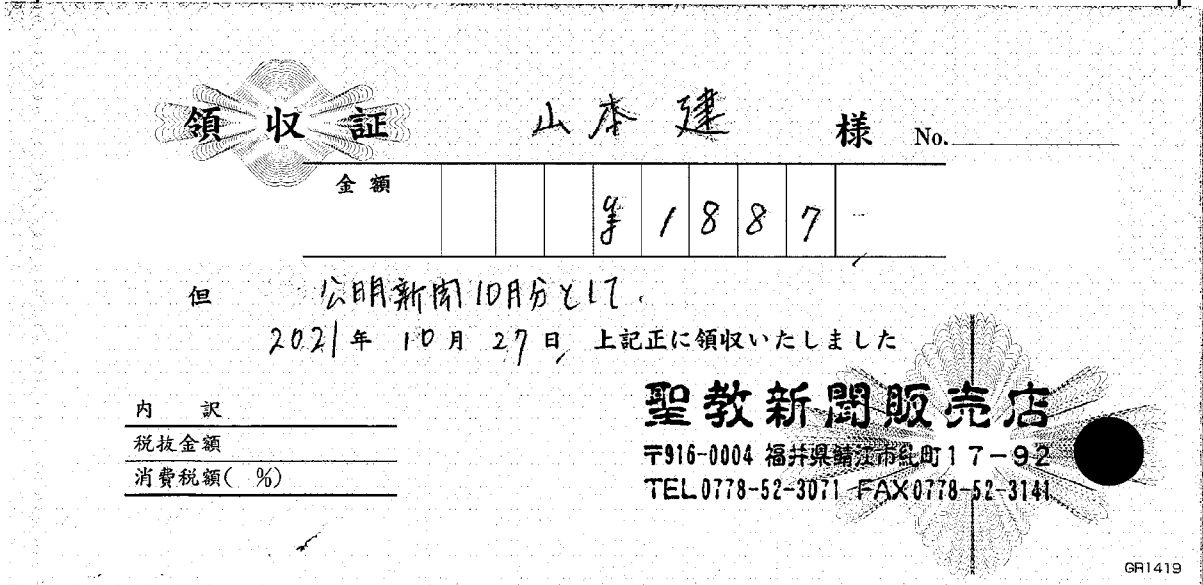 領収証 山本 建 様 No.
金額 ¥1887
但 公明新聞10月分として.
2021年 10月 27日 上記正に領収いたしました
内訳
税抜金額
消費税額( %)
聖教新聞販売店
〒916-0004 福井県鯖江市糺町17-92
TEL0778-52-3071 FAX0778-52-3141
GR1419